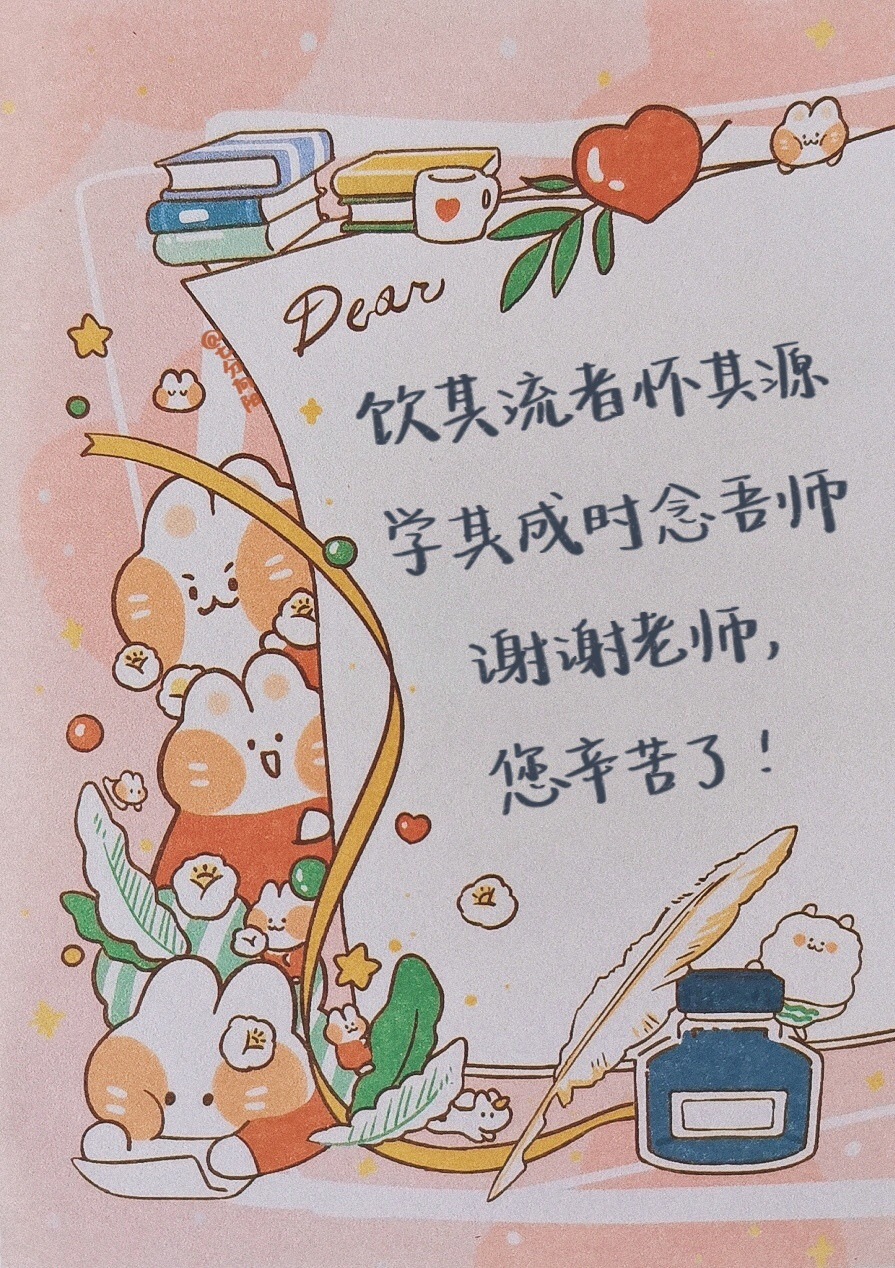 Dear
@七分向阳
饮其流者怀其源
学其成时念吾师
谢谢老师，
您辛苦了！